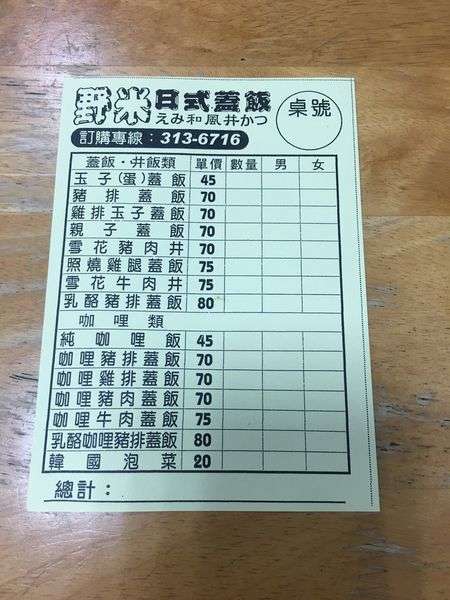 野米日式蓋飯
えみ和風丼かつ
桌號
訂購專線：313-6716
蓋飯．丼飯類 單價 數量 男 女
玉子(蛋)蓋飯 45
豬排蓋飯 70
雞排玉子蓋飯 70
親子蓋飯 70
雪花豬肉丼 70
照燒雞腿蓋飯 75
雪花牛肉丼 75
乳酪豬排蓋飯 80
咖哩類
純咖哩飯 45
咖哩豬排蓋飯 70
咖哩雞排蓋飯 70
咖哩豬肉蓋飯 70
咖哩牛肉蓋飯 75
乳酪咖哩豬排蓋飯 80
韓國泡菜 20
總計：